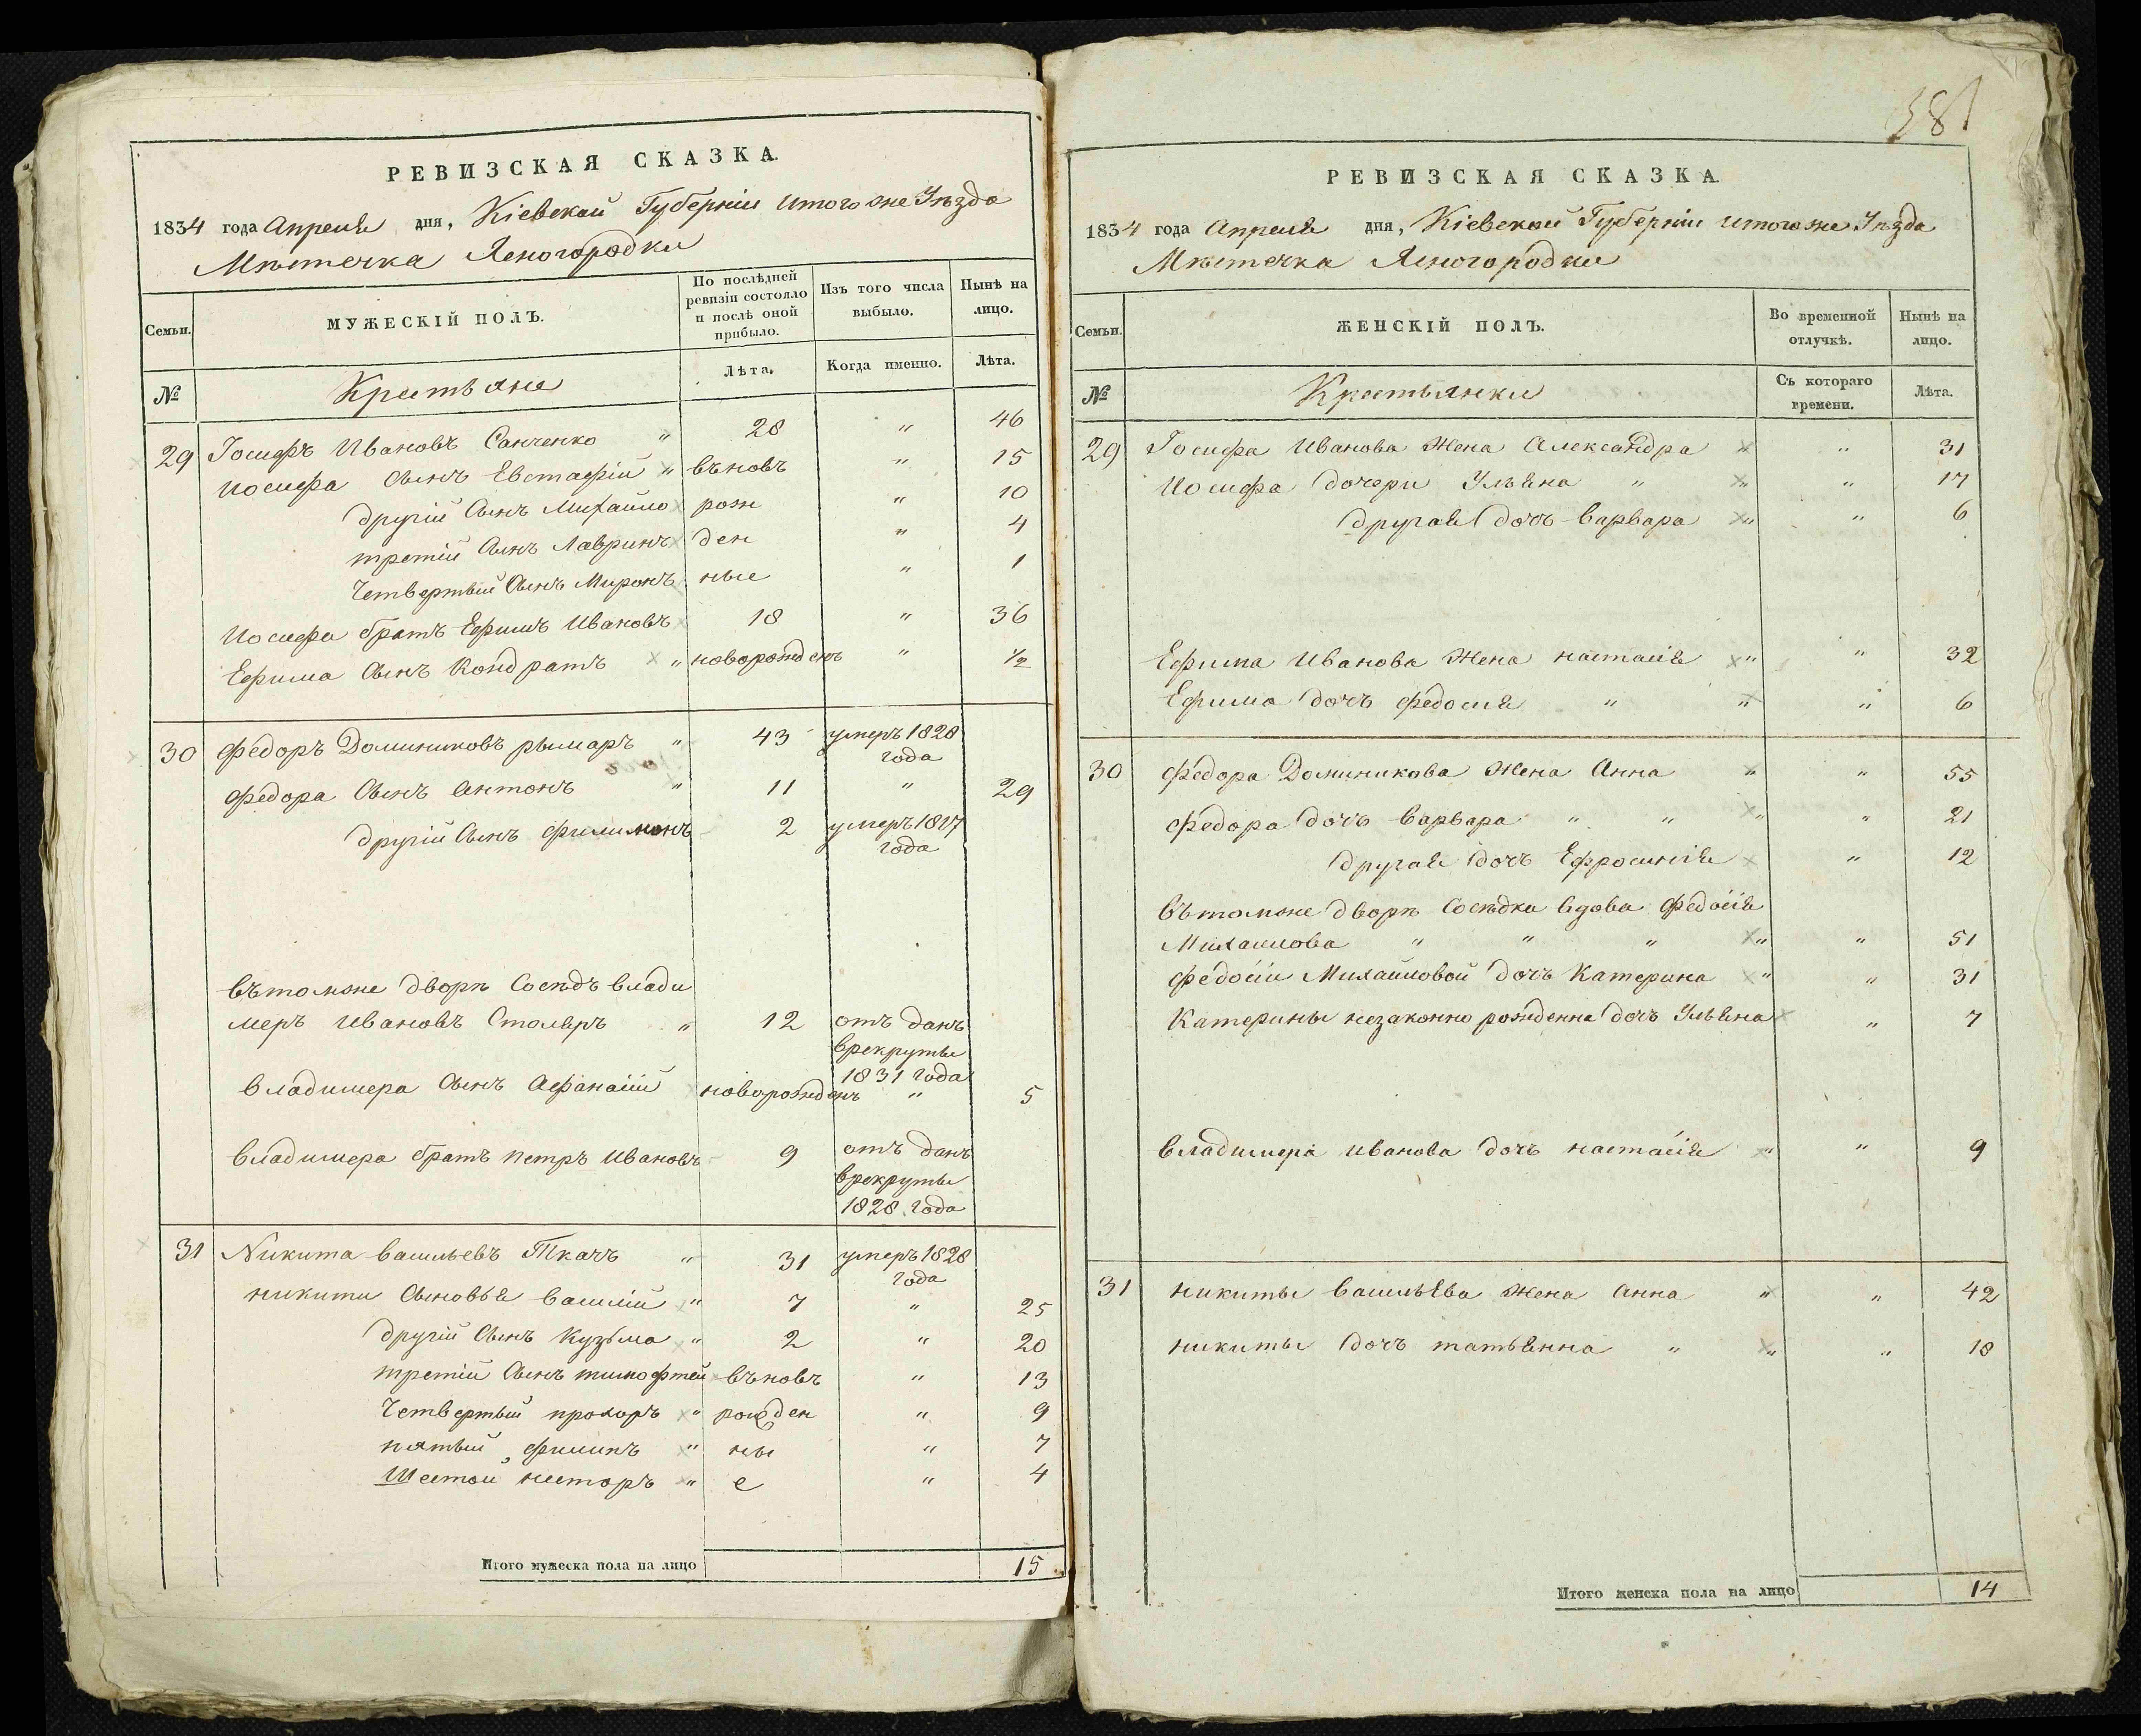 РЕВИЗСКАЯ СКАЗКА.
1834 года Апреля дня, Кіевской Губерніи итогоже Уѣзда
Мѣстечка Ясногородки
Семьи.
МУЖЕСКІЙ ПОЛЪ.
По послѣдней ревизіи состояло и послѣ оной прибыло.
Изъ того числа выбыло.
Нынѣ на лицо.
№
Крестьяне
Лѣта.
Когда именно.
Лѣта.
29 Іосифъ Ивановъ Санченко " 28 " 46
Иосифа Сынъ Евстафій " вѣновъ " 15
другій Сынъ Михайло рож " 10
третій Сынъ Лавринъ ден " 4
Четвертый Сынъ Миронъ ные " 1
Иосифа братъ Ефимъ Ивановъ 18 " 36
Ефима Сынъ Кондратъ " новорожденъ " 1/2
30 Федоръ Доминиковъ рымаръ " 43 умеръ 1828
года
Федора Сынъ Антонъ " 11 " 29
другій Сынъ Филимонъ 2 умеръ 1827
года
вътомже дворѣ Сосѣдъ влади
меръ Ивановъ Столяръ " 12 отъ данъ
врекруты
1831 года
владимера Сынъ Афанасій новорожденъ " 5
владимера братъ петръ Ивановъ 9 отъ данъ
врекруты
1828 года
31 Никита васильевъ Ткачъ " 31 умеръ 1828
года
никити Сыновья василій " 7 " 25
другій Сынъ Кузьма " 2 " 20
третій Сынъ тимофтей въновъ " 13
Четвертый прохоръ " рожден " 9
пятый филипъ " ны " 7
Шестой несторъ " е " 4
Итого мужеска пола на лицо 15
581
РЕВИЗСКАЯ СКАЗКА.
1834 года Апреля дня, Кіевской Губерніи итогоже Уѣзда
Мѣстечка Ясногородки
Семьи.
ЖЕНСКІЙ ПОЛЪ.
Во временной отлучкѣ.
Нынѣ на лицо.
№
Крестьянки
Съ котораго времени.
Лѣта.
29 Іосифа Иванова Жена Александра " " 31
Иосифа дочери Ульяна " " " 17
другая дочъ варвара " " 6
Ефима Иванова Жена настасія " " 32
Ефима дочъ федосия " " " 6
30 Федора Доминикова Жена Анна " " 55
Федора дочъ варвара " " " " 21
другая дочъ Ефросинія " 12
вътомже дворѣ Сосѣдка вдова Федосія
Михаилова " " " " " 51
Федосіи Михайловой дочъ Катерина " " 31
Катерины незаконно рожденна дочъ Ульяна " 7
владимера иванова дочъ настасія " " 9
31 никиты васильева жена Анна " " 42
никиты дочъ татьянна " " " 18
Итого женска пола на лицо 14